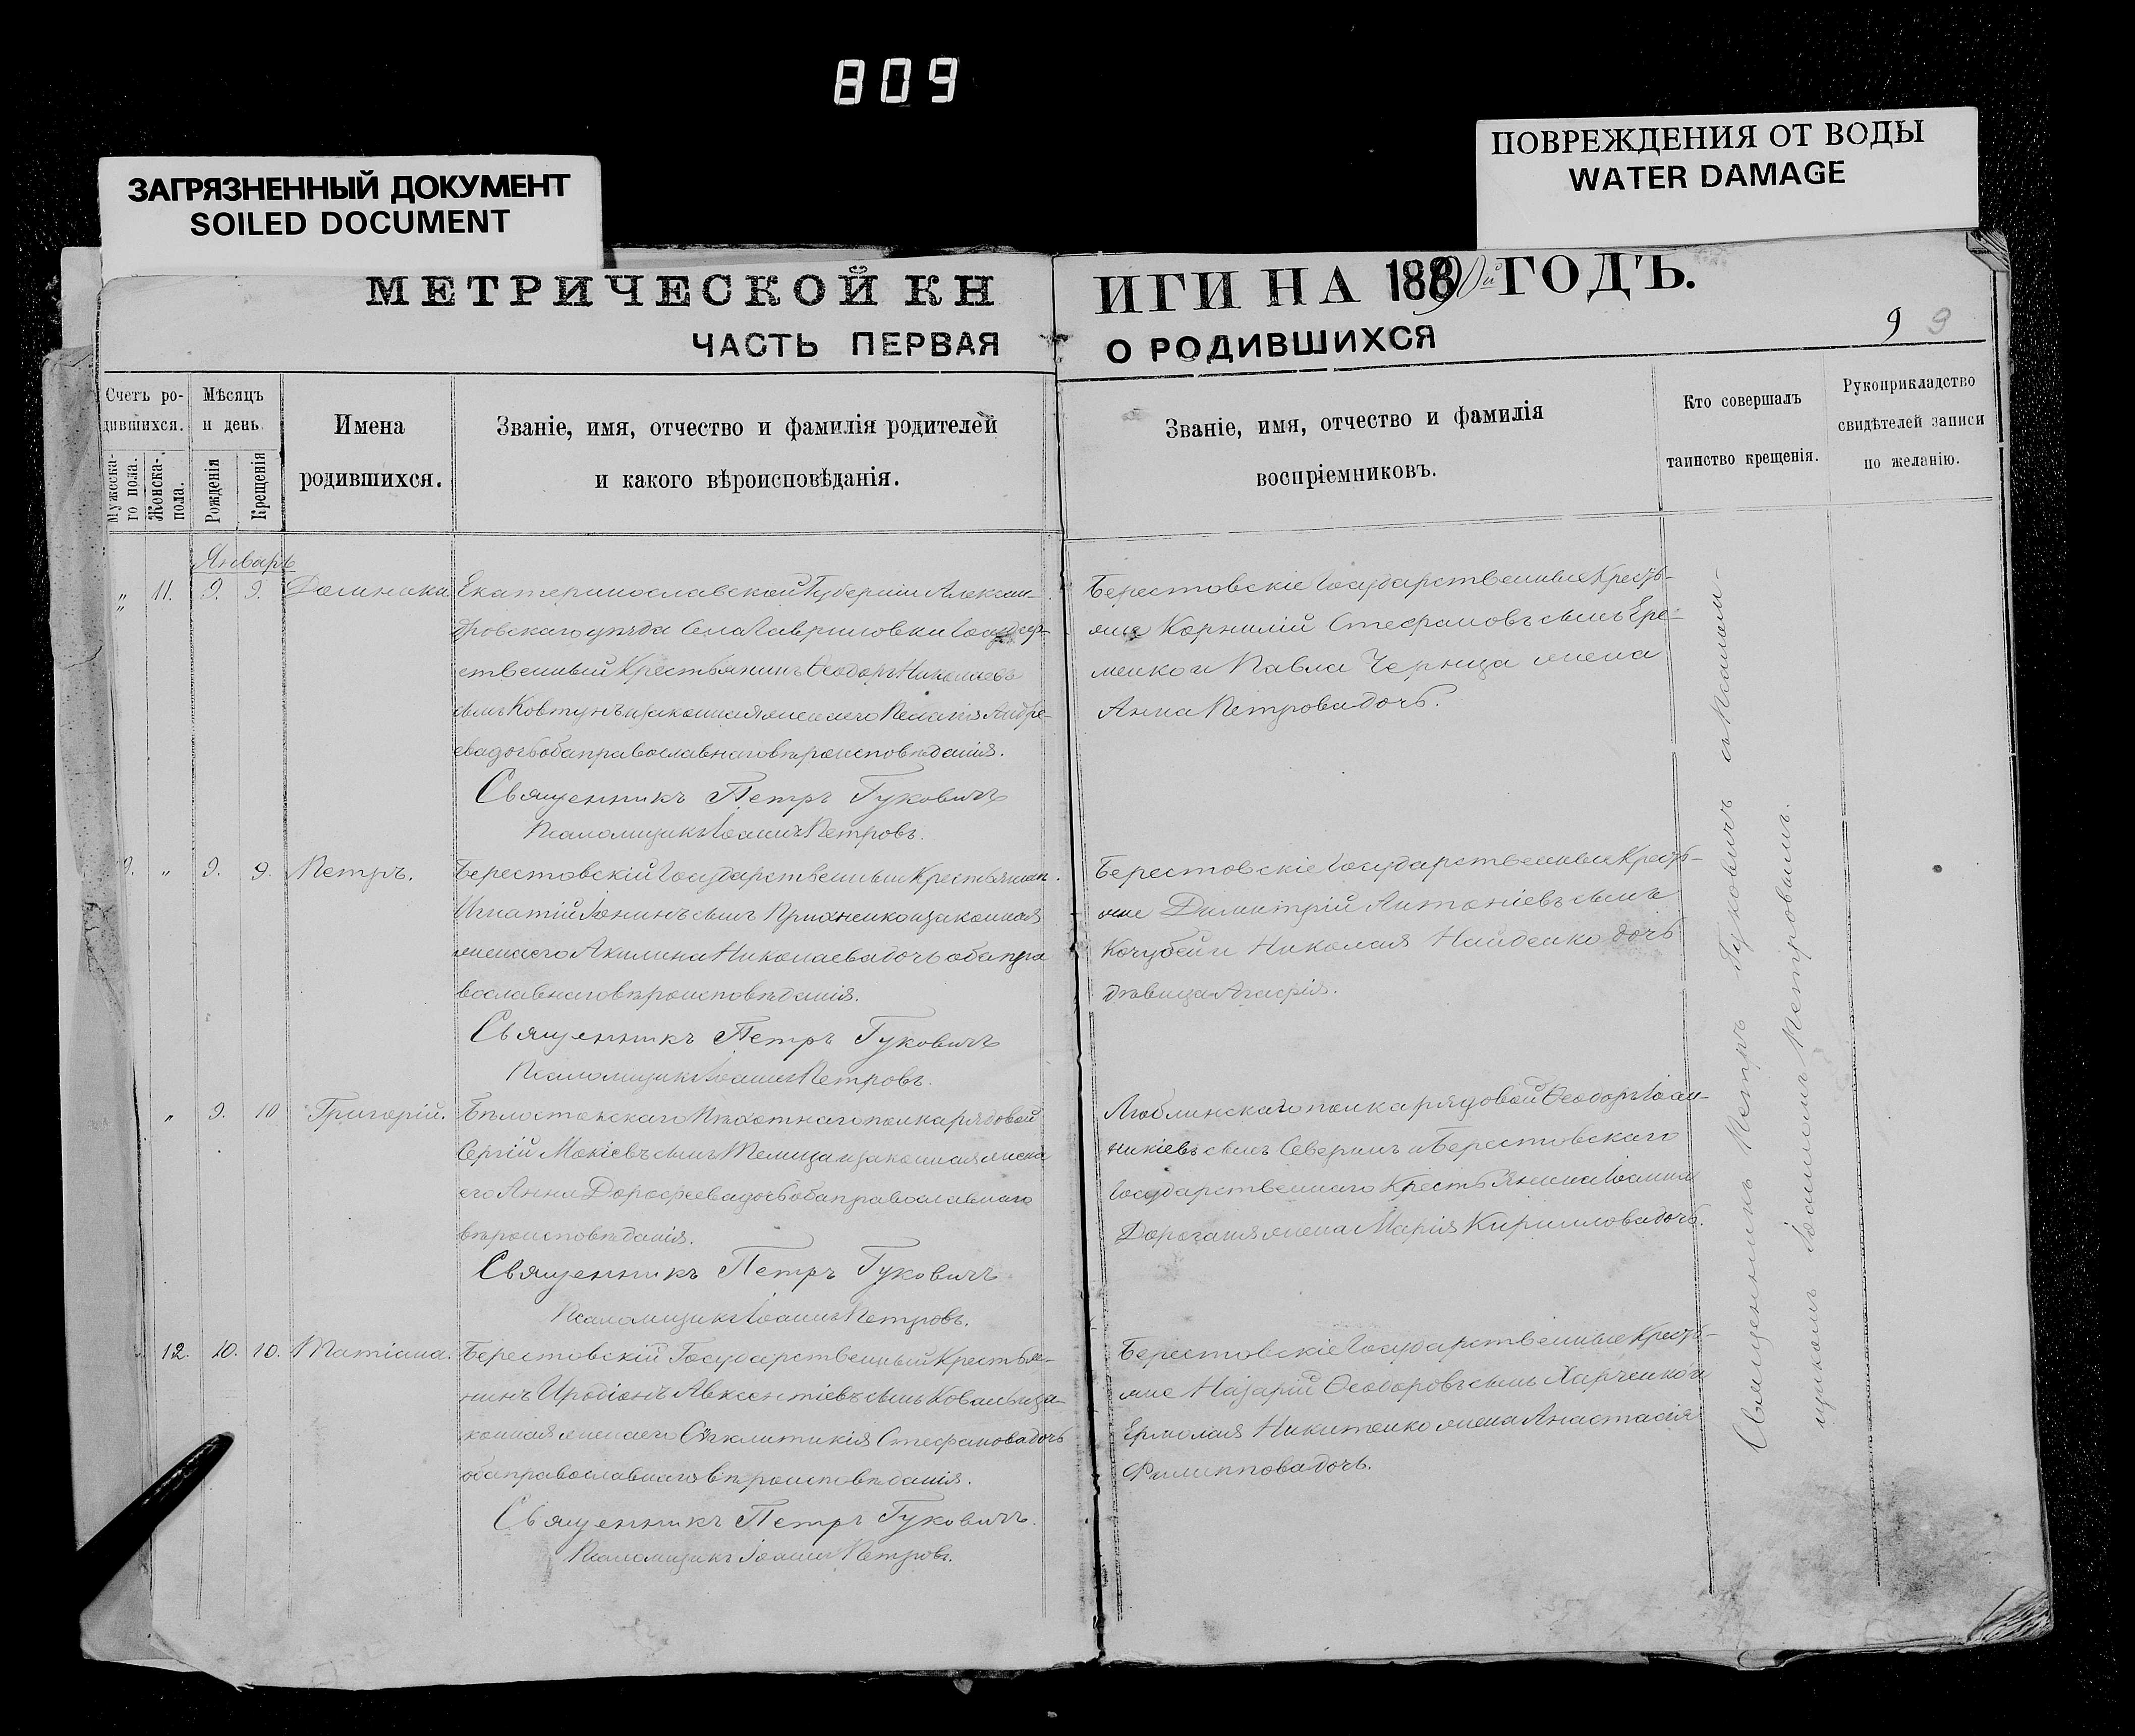 809
ЗАГРЯЗНЕННЫЙ ДОКУМЕНТ
SOILED DOCUMENT
ПОВРЕЖДЕНИЯ ОТ ВОДЫ
WATER DAMAGE
МЕТРИЧЕСКОЙ КНИГИ НА 1890й ГОДЪ.
ЧАСТЬ ПЕРВАЯ О РОДИВШИХСЯ
9 9
Счетъ ро-
дившихся.
Мужеска-
го пола.
Женска-
пола.
Мѣсяцъ
и день.
Рожденія
Крещенія
Имена
родившихся.
Званіе, имя, отчество и фамилія родителей
и какого вѣроисповѣданія.
Званіе, имя, отчество и фамилія
воспріемниковъ.
Кто совершалъ
таинство крещенія.
Рукоприкладство
свидѣтелей записи
по желанію.
Январь
" 11. 9. 9. Домника
Екатеринославской Губерніи Алексан-
дровскаго уѣзда Села Гавриловки Государ-
ственный Крестьянинъ Ѳеодоръ Николаевъ
сынъ Ковтунъ и законная жена его Пелагія Андре-
ева дочь оба православнаго вѣроисповѣданія.
Священникъ Петръ Гуковичъ
Псаломщикъ Іоаннъ Петровъ.
Берестовскіе Государственные Кресть-
яне Корнилій Стефановъ сынъ Ере-
менко и Павла Черныша жена
Анна Петрова дочь.
9. " 9. 9. Петръ.
Берестовскій Государственный Крестьянин.
Игнатій Іонинъ сынъ и законная
жена его Акилина Николаева дочь оба пра
вославнаго вѣроисповѣданія.
Священникъ Петръ Гуковичъ
Псаломщикъ Іоаннъ Петровъ.
Берестовскіе Государственные Кресть-
яне Димитрій Антоніевъ сынъ
Кочубей и Николая Найденко дочь
дѣвица Агафія.
" 9. 10 Григорій.
Бѣлостокскаго Пѣхотнаго полка рядовой
Сергій Мокіевъ сынъ Телица и законная жена
его Анна Дорофеева дочь оба православнаго
вѣроисповѣданія.
Священникъ Петръ Гуковичъ
Псаломщикъ Іоаннъ Петровъ.
Люблинскаго полка рядовой Ѳеодоръ Іоан-
никіевъ сынъ Северинъ и Берестовскаго
Государственнаго Крестьянина Іоанна
Дороганя жена Марія Кириллова дочь.
12. 10. 10. Татіана.
Берестовскій Государственный Крестья-
нинъ Иродіонъ Авксентіевъ сынъ Коваль и за-
конная жена его Сѵгклитикія Стефанова дочь
оба православнаго вѣроисповѣданія.
Священникъ Петръ Гуковичъ.
Псаломщикъ Іоаннъ Петровъ.
Берестовскіе Государственные Кресть-
яне Назарій Ѳеодоровъ сынъ Харченко и
Ермолая Никитенко жена Анастасія
Филиппова дочь.
Священникъ Петръ Гуковичъ съ Псалом-
щикомъ Іоанномъ Петровымъ.